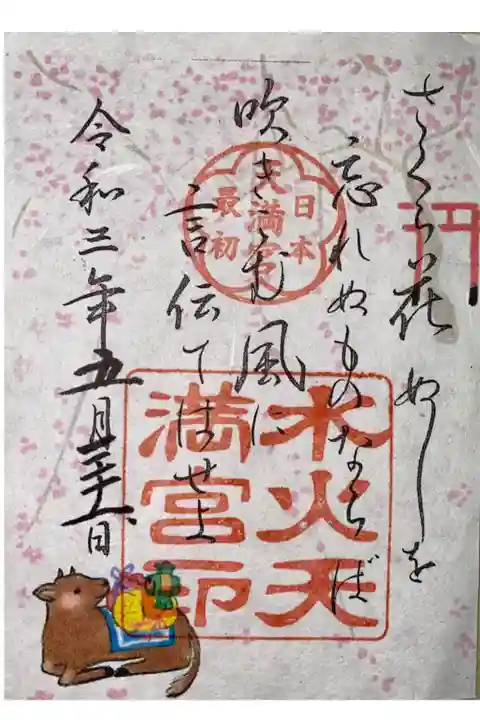 さくら花 ぬしを
忘れぬものならば
吹きこむ風に
言伝てはせよ
令和三年五月 日
日本
天満宮
最初
水火天
満宮印